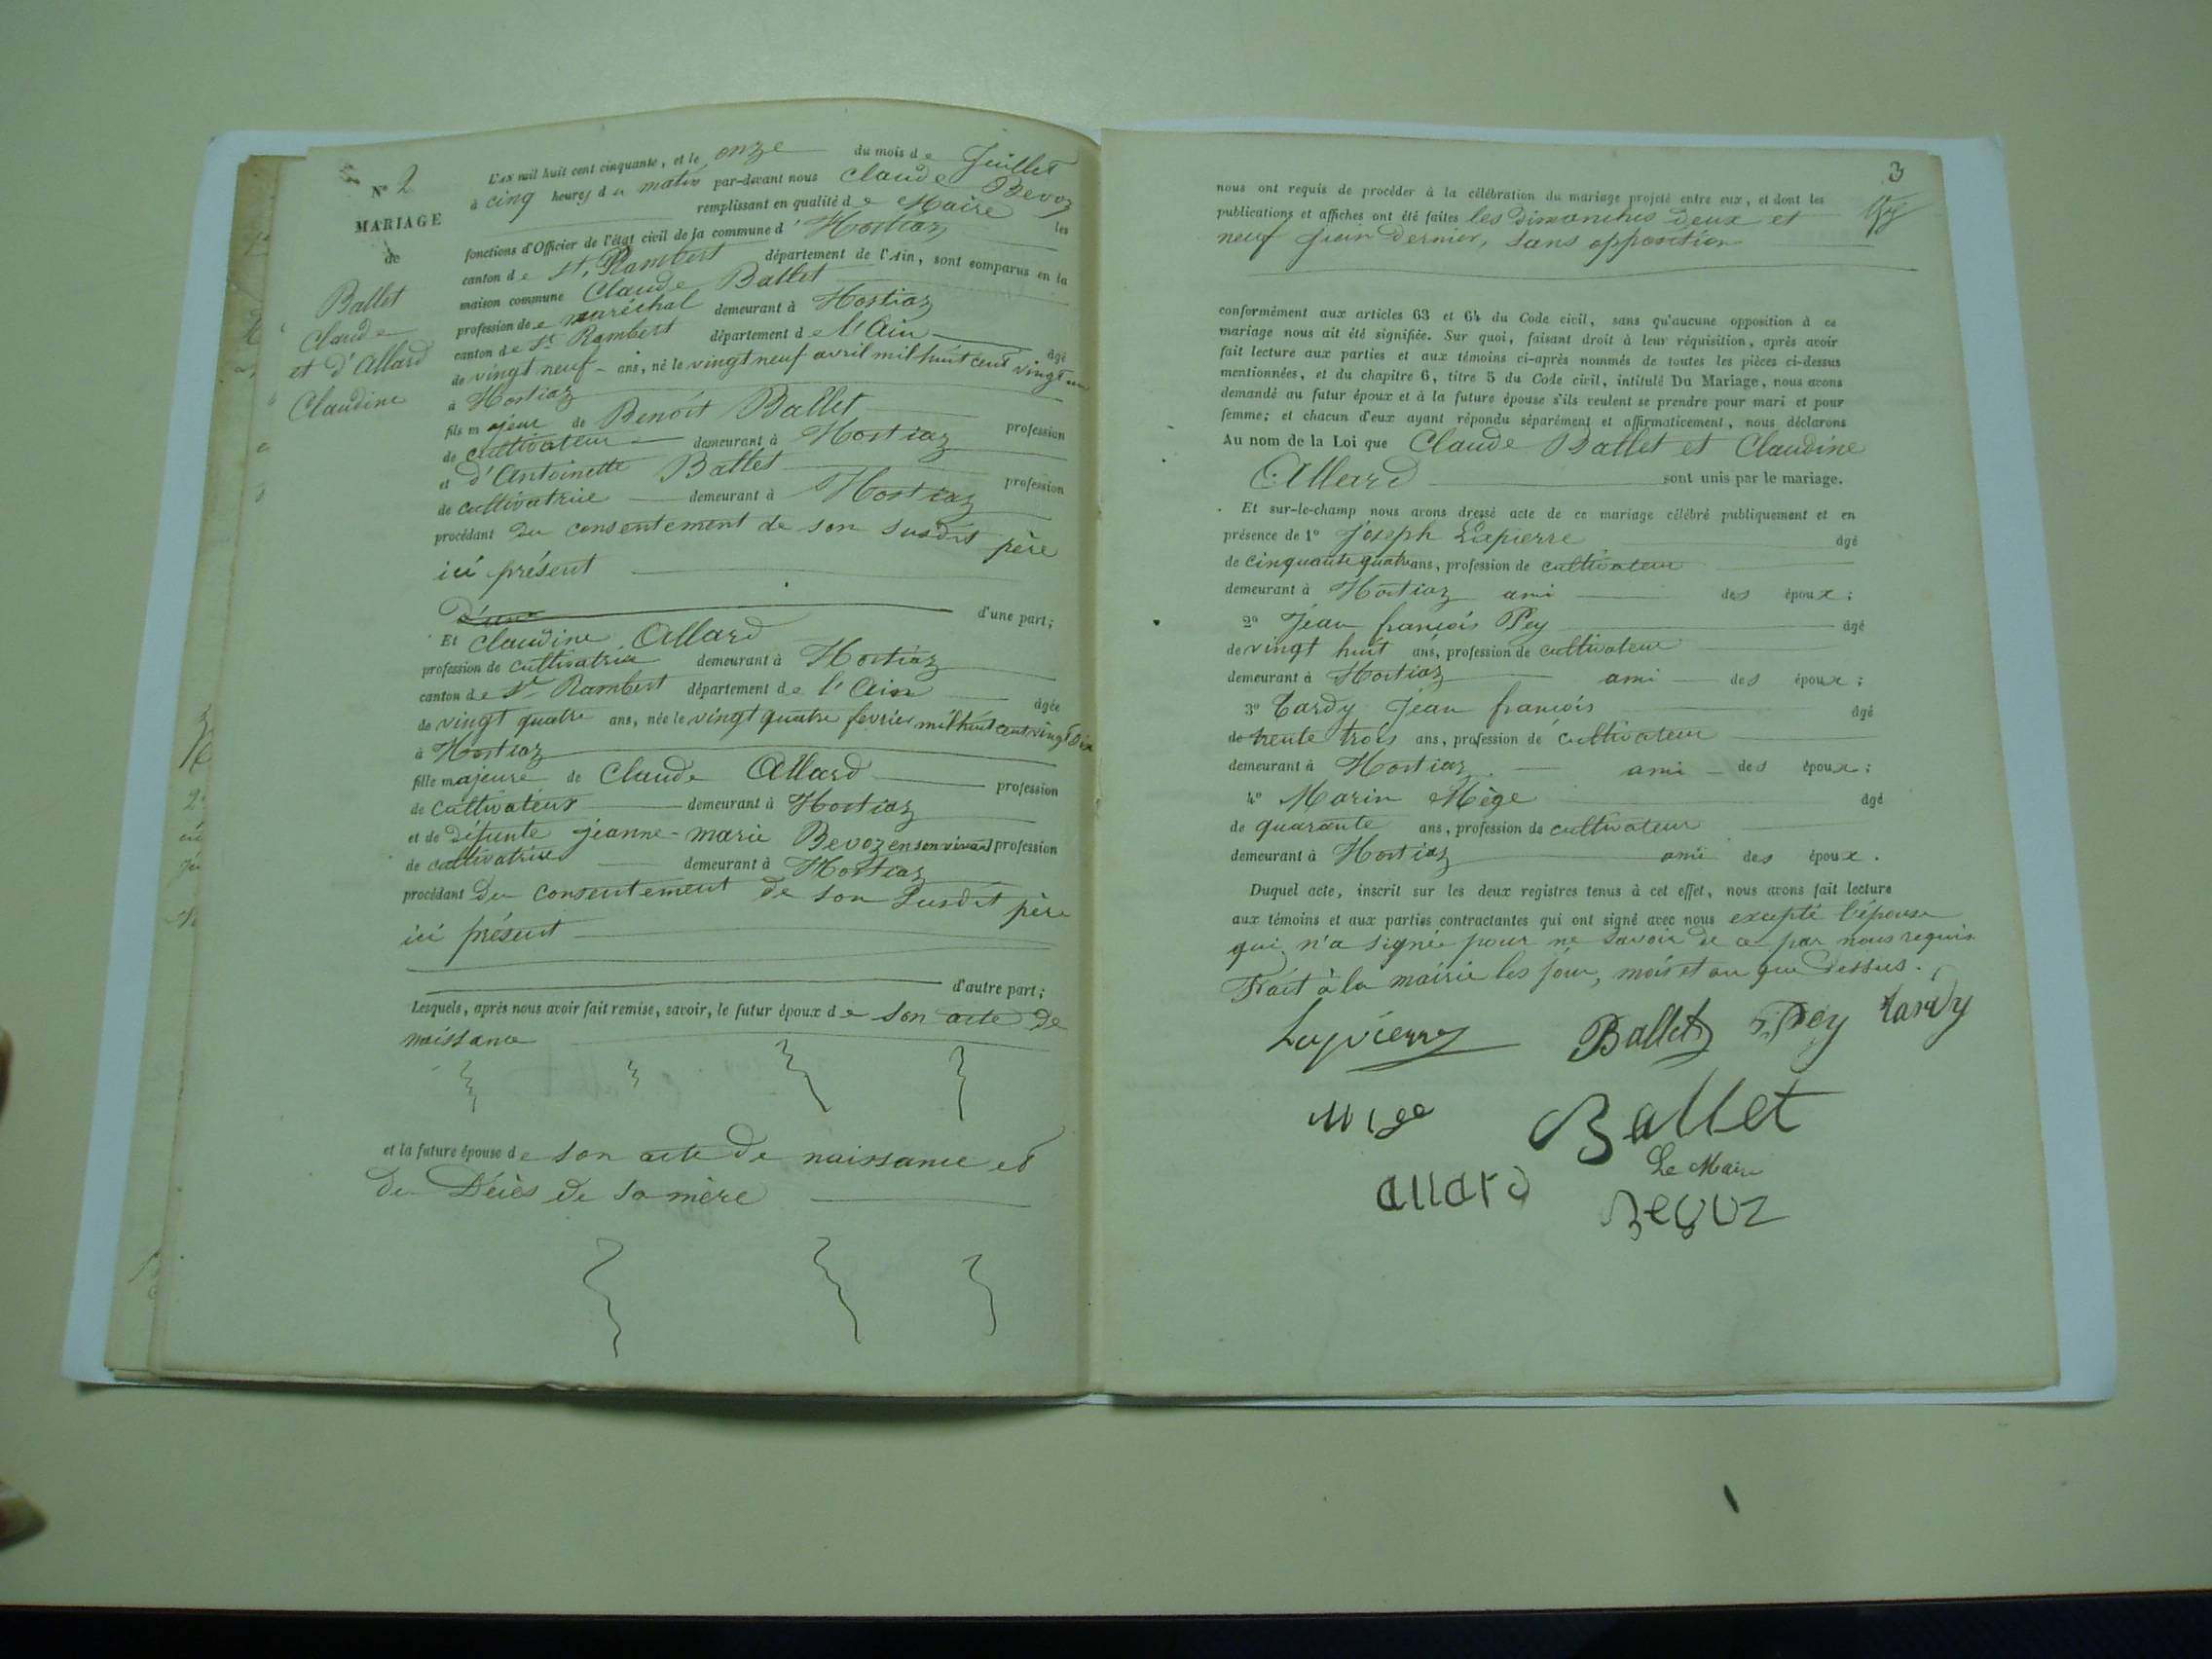 N° 2
MARIAGE
de
Ballet
Claude
et d'Allard
Claudine
L'AN mil huit cent cinquante, et le onze du mois de Juillet
à cinq heures du matin par-devant nous Claude Bevoz
remplissant en qualité de Maire les
fonctions d'Officier de l'état civil de la commune d'Hostiaz
canton de St. Rambert département de l'Ain, sont comparus en la
maison commune Claude Ballet
profession de maréchal demeurant à Hostiaz
canton de St Rambert département de l'Ain âgé
de vingt neuf ans, né le vingt neuf avril mil huit cent vingt un
à Hostiaz
fils majeur de Benoît Ballet profession
de cultivateur demeurant à Hostiaz
et d'Antoinette Ballet profession
de cultivatrice demeurant à Hostiaz
procédant du consentement de son susdit père
ici présent
d'une part;
Et Claudine Allard
profession de cultivatrice demeurant à Hostiaz
canton de St Rambert département de l'Ain âgée
de vingt quatre ans, née le vingt quatre fevrier mil huit cent vingt six
à Hostiaz
fille majeure de Claude Allard profession
de cultivateur demeurant à Hostiaz
et de défunte jeanne-marie Bevoz en son vivant profession
de cultivatrice demeurant à Hostiaz
procédant du consentement de son susdit père
ici présent
d'autre part;
Lesquels, après nous avoir fait remise, savoir, le futur époux de son acte de
naissance
et la future épouse de son acte de naissance et
de Décès de sa mère
3
nous ont requis de procéder à la célébration du mariage projeté entre eux, et dont les
publications et affiches ont été faites les Dimanches deux et
neuf juin dernier, sans opposition
conformément aux articles 63 et 64 du Code civil, sans qu'aucune opposition à ce
mariage nous ait été signifiée. Sur quoi, faisant droit à leur réquisition, après avoir
fait lecture aux parties et aux témoins ci-après nommés de toutes les pièces ci-dessus
mentionnées, et du chapitre 6, titre 5 du Code civil, intitulé Du Mariage, nous avons
demandé au futur époux et à la future épouse s'ils veulent se prendre pour mari et pour
femme; et chacun d'eux ayant répondu séparément et affirmativement, nous déclarons
Au nom de la Loi que Claude Ballet et Claudine
Allard sont unis par le mariage.
Et sur-le-champ nous avons dressé acte de ce mariage célébré publiquement et en
présence de 1° Joseph Lapierre âgé
de cinquante quatre ans, profession de cultivateur
demeurant à Hostiaz ami des époux;
2° Jean françois Pey âgé
de vingt huit ans, profession de cultivateur
demeurant à Hostiaz ami des époux;
3° Tardy Jean françois âgé
de trente trois ans, profession de cultivateur
demeurant à Hostiaz ami des époux;
4° Marin Mège âgé
de quarante ans, profession de cultivateur
demeurant à Hostiaz ami des époux.
Duquel acte, inscrit sur les deux registres tenus à cet effet, nous avons fait lecture
aux témoins et aux parties contractantes qui ont signé avec nous excepté l'épouse
qui n'a signée pour ne savoir de ce par nous requis
Fait à la mairie les jour, mois et an que dessus.
Lapierre Ballet Pey tardy
mege Ballet
Le Maire
allard Bevoz